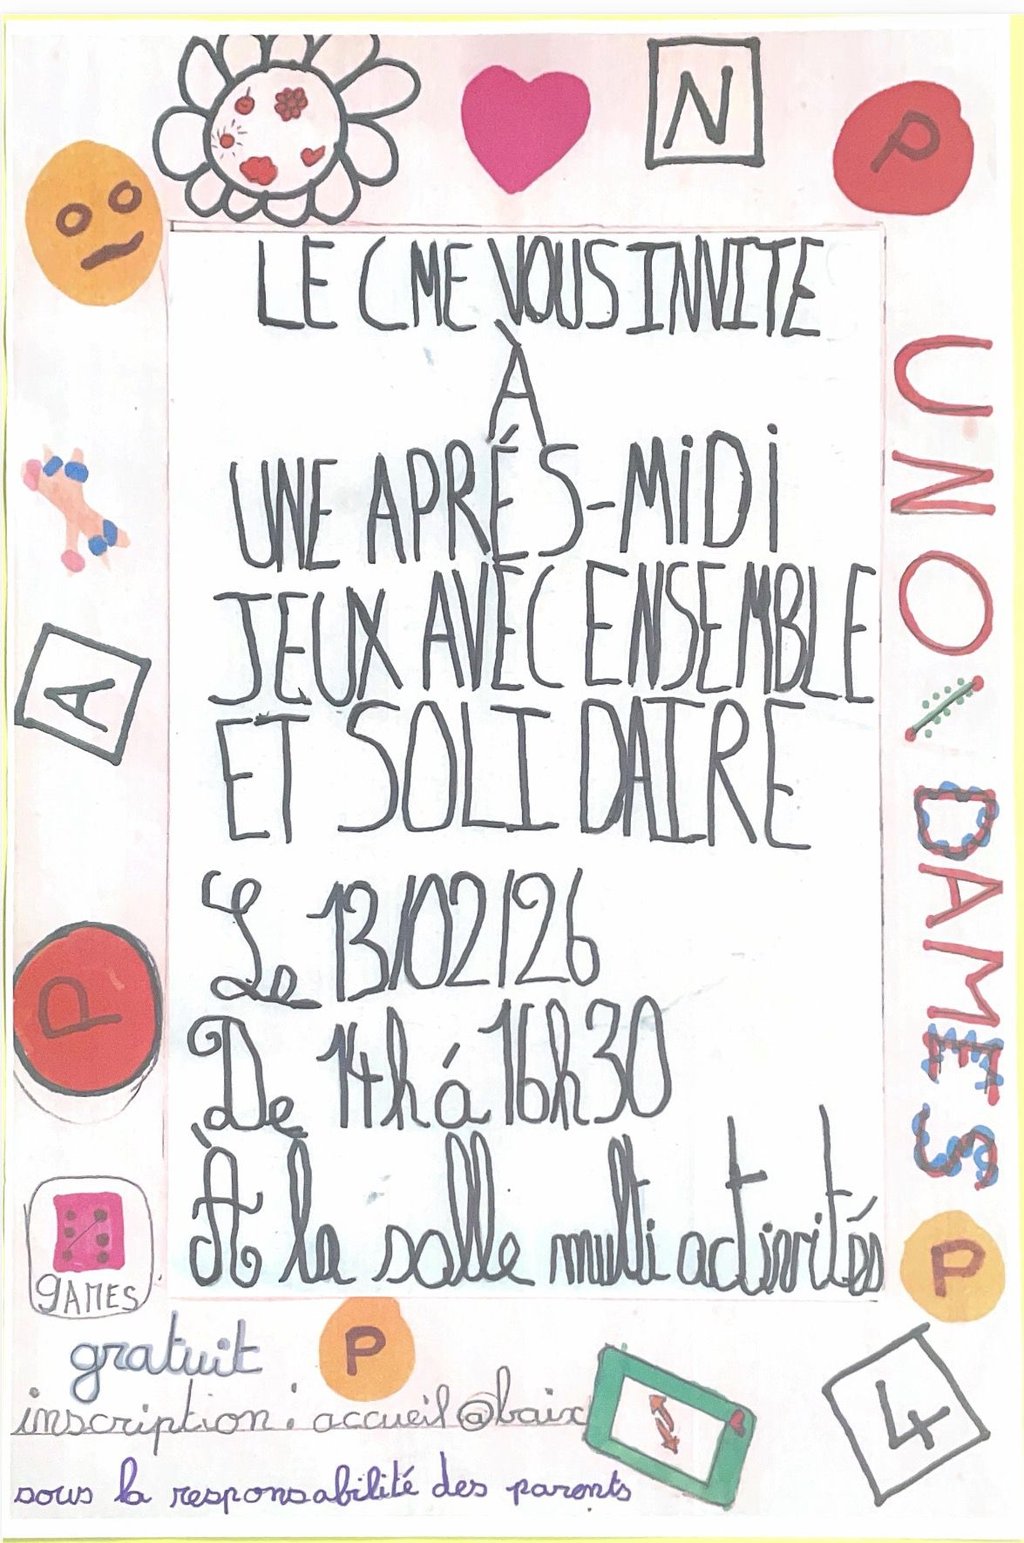 N
P
LE CME VOUS INVITE
À
UNE APRÉS-MiDi
JEUX AVEC ENSEMBLE
ET SOLIDAIRE
Le 13/02/26
De 14h á 16h30
À la salle multi activités
UNO
DAMES
A
P
GAMES
P
P
4
gratuit
inscription : accueil@baix
sous la responsabilité des parents